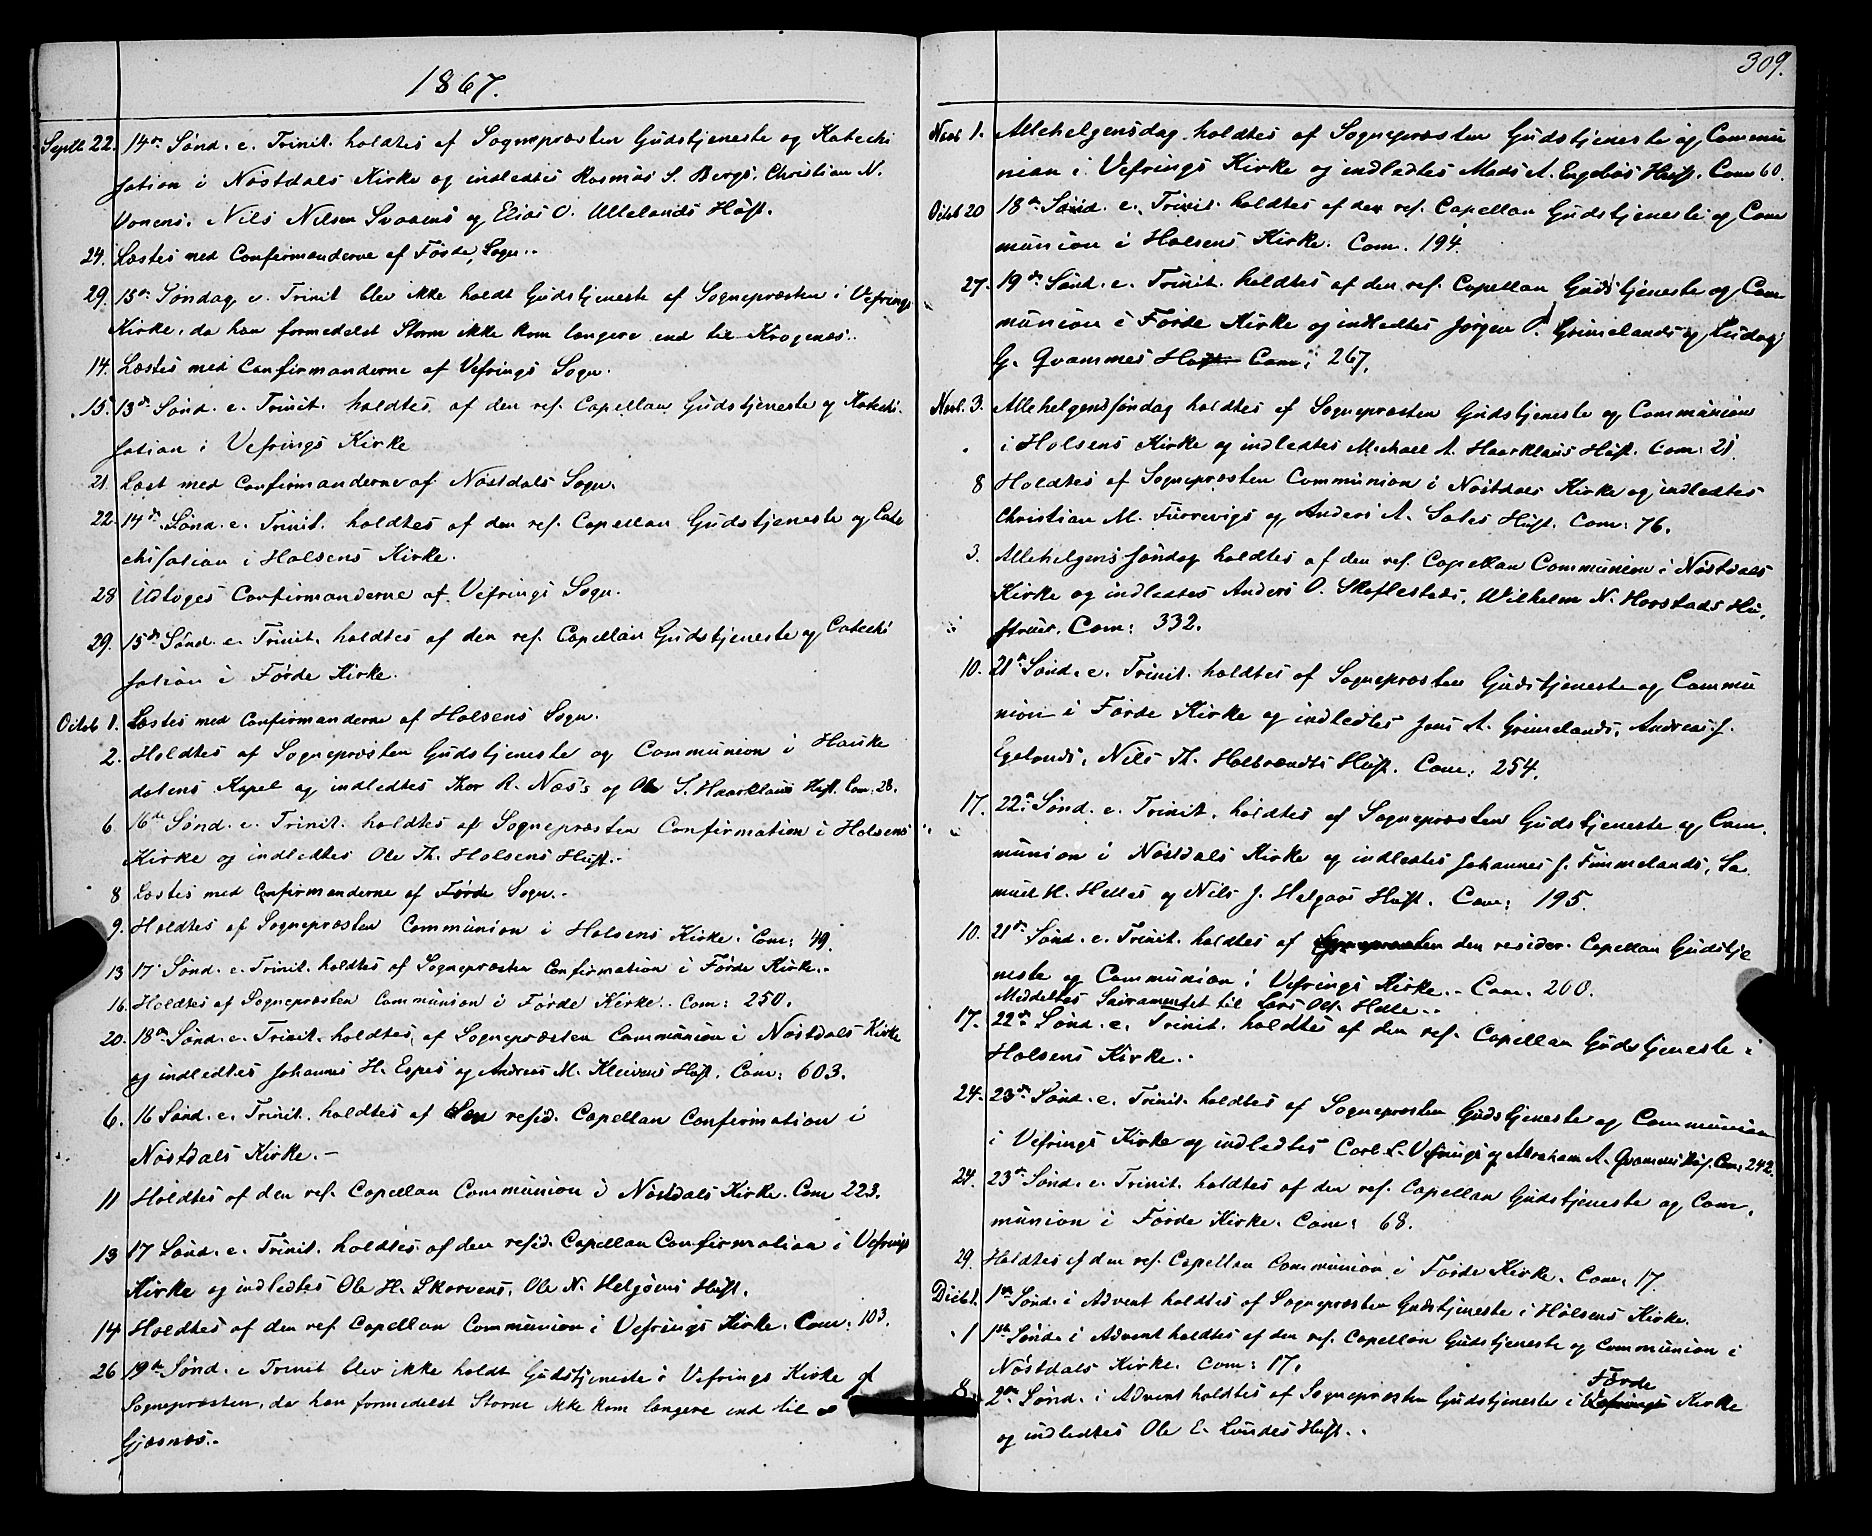 1867.
Septb 22. 14de Sønd. e. Trinit. holdtes af Sognepræsten Gudstjeneste og Katechi
sation i Nøstdals Kirke og indledtes Rasmus S. Bergs, Christian N.
Vonens, Nils Nilsen Svaaens og Elias O. Ullelands Hust.
24. Læstes med Confirmanderne af Førde Sogn..
29. 15de Søndag e. Trinit blev ikke holdt Gudstjeneste af Sognepræsten i Vefrings
Kirke, da han formedelst Storm ikke kom længere end til Krogenæs..
14. Læstes med Confirmanderne af Vefrings Sogn.
15. 13de Sønd. e. Trinit. holdtes af den res. Capellan Gudstjeneste og Katechi-
sation i Vefrings Kirke
21. Læst med Confirmanderne af Nøstdals Sogn.
22. 14de Sønd. e. Trinit. holdtes af den res. Capellan Gudstjeneste og Cate
chisation i Holsens Kirke.
28 Udtoges Confirmanderne af Vefrings Sogn.
29. 15de Sønd. e. Trinit. holdtes af den res. Capellan Gudstjeneste og Catechi
sation i Førde Kirke.
Octob 1. Læstes med Confirmanderne af Holsens Sogn.
2. Holdtes af Sognepræsten Gudstjeneste og Communion i Hauke
dalens Kapel og indledtes Thor R. Næs's og Ole S. Haarklaus Hust. Com: 28.
6. 16de Sønd. e. Trinit. holdtes af Sognepræsten Confirmation i Holsens
Kirke og indledtes Ole Th. Holsens Hust..
8 Læstes med Confirmanderne af Førde Sogn..
9. Holdtes af Sognepræsten Communion i Holsens Kirke. Com: 49.
13 17 Sønd. e. Trinit. holdtes af Sognepræsten Confirmation i Førde Kirke..
16. Holdtes af Sognepræsten Communion i Førde Kirke. Com: 250.
20. 18de Sønd. e. Trinit. holdtes af Sognepræsten Communion i Nøstdals Kirke
og indledtes Johannes H. Espes og Andreas M. Kleivens Hust. Com: 603.
6. 16 Sønd. e. Trinit. holdtes af den resid. Capellan Confirmation i
Nøstdals Kirke. –
11 Holdtes af den res. Capellan Communion i Nøstdals Kirke. Com 223.
13 17 Sønd. e. Trinit. holdtes af den resid. Capellan Confirmation i Vefrings
Kirke og indledtes Ole H. Skorvens, Ole N. Helgøens Hust.
14 Holdtes af den res. Capellan Communion i Vefrings Kirke. Com: 103.
26 19de Sønd. e Trinit blev ikke holdt Gudstjeneste i Vefrings Kirke af
Sognepræsten, da han formedelst Storm ikke kom længere end til
Gjæsnæs..
309.
Novb 1. Allehelgensdag holdtes af Sognepræsten Gudstjeneste og Commu
nion i Vefrings Kirke og indledtes Mads A. Engebøs Hust. Com 60.
Octob 20 18de Sønd. e. Trinit. holdtes af den res. Capellan Gudstjeneste og Com
munion i Holsens Kirke. Com. 194.
27. 19de Sønd. e. Trinit. holdtes af den res. Capellan Gudstjeneste og Com
munion i Førde Kirke og indledtes Jørgen P. Grimelands og
G. Qvammes Hust. Com: 267.
Novb. 3. Allehelgenssøndag holdtes af Sognepræsten Gudstjeneste og Communion
i Holsens Kirke og indledtes Michael A. Haarklaus Hust. Com: 21.
8 Holdtes af Sognepræsten Communion i Nøstdals Kirke og indledtes
Christian M. Furrevigs og Anders A. Soles Hust. Com: 76.
3. Allehelgenssøndag holdtes af den res. Capellan Communion i Nøstdals
Kirke og indledtes Anders O. Skeflestads, Wilhelm N. Horstads Hu-
struer. Com: 332.
10. 21de Sønd. e. Trinit. holdtes af Sognepræsten Gudstjeneste og Commu
nion i Førde Kirke og indledtes Jens A. Grimelands, Andreas J.
Egelands, Nils Th. Halbrændts Hust. Com: 254.
17. 22de Sønd. e. Trinit. holdtes af Sognepræsten Gudstjeneste og Com-
munion i Nøstdals Kirke og indledtes Johannes J. Fimmelands, Sa
muel H. Helles og Nils J. Helgaas Hust. Com: 195.
10. 21de Sønd. e. Trinit. holdtes af Sognepræsten den resider. Capellan Gudstje
neste og Communion i Vefrings Kirke.. Com. 200.
Meddeltes Sacramentet til Lars Ols. Helle..
17. 22de Sønd. e. Trinit. holdtes af den res. Capellan Gudstjeneste i
Holsens Kirke..
24. 23de Sønd. e. Trinit. holdtes af Sognepræsten Gudstjeneste og Communion
i Vefrings Kirke og indledtes Carl L. Vefrings og Abraham A. Qvammes Hust. Com: 242.
24. 23de Sønd. e. Trinit. holdtes af den res. Capellan Gudstjeneste og Com-
munion i Førde Kirke. Com: 68.
29. Holdtes af den res. Capellan Communion i Førde Kirke. Com. 17.
Decbr 1. 1ste Sønd. i Advent holdtes af Sognepræsten Gudstjeneste i Holsens Kirke.
1 1ste Sønd. i Advent holdtes af den res. Capellan Gudstjeneste og Communion i
Nøstdals Kirke. Com: 17.
Førde
8. 2den Sønd. i Advent holdtes af Sognepræsten Gudstjeneste i Vefrings Kirke
og indledtes Ole E. Lundes Hust..